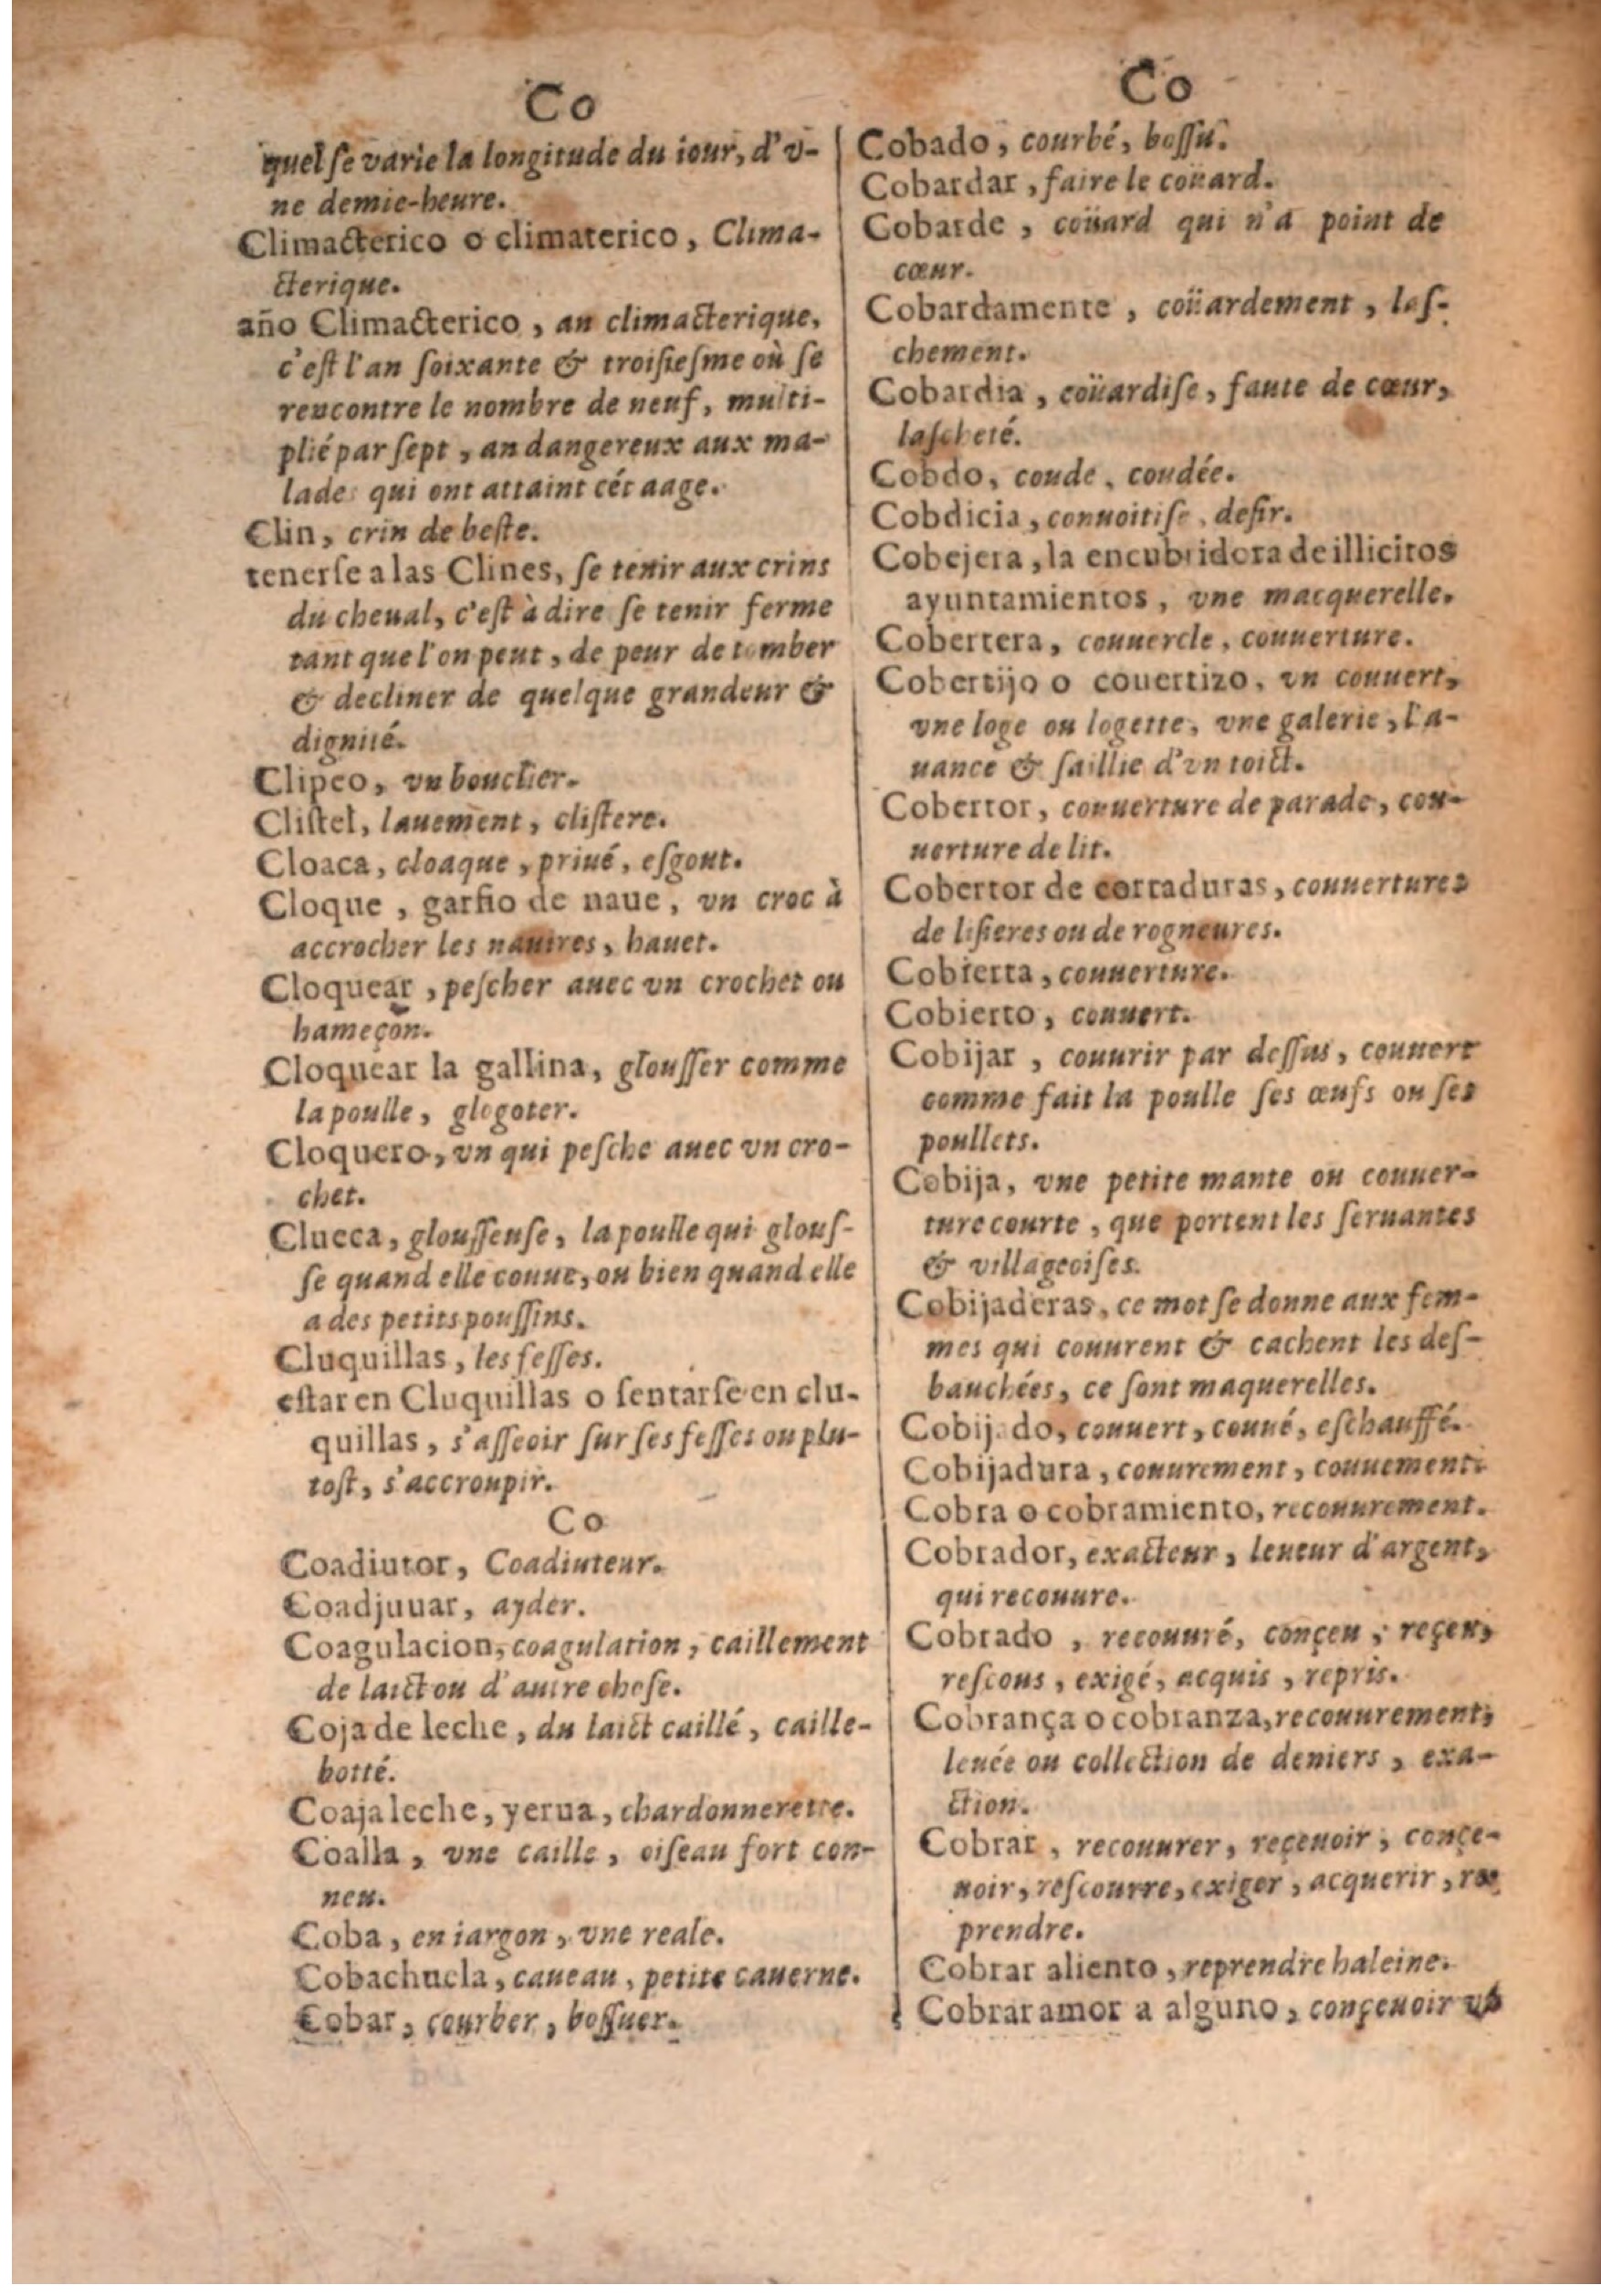 Co
quel se varie la longitude du iour, d'v-
ne demie-heure.
Climacterico o climaterico, Clima-
cterique.
año Climacterico, an climacterique,
c'est l'an soixante & troisiesme où se
rencontre le nombre de neuf, multi-
plié par sept, an dangereux aux ma-
lades qui ont attaint cét aage.
Clin, crin de beste.
tenerse a las Clines, se tenir aux crins
du cheual, c'est à dire se tenir ferme
tant que l'on peut, de peur de tomber
& decliner de quelque grandeur &
dignité.
Clipeo, vn bouclier.
Clistel, lauement, clistere.
Cloaca, cloaque, priué, esgout.
Cloque, garfio de naue, vn croc à
accrocher les nauires, hauet.
Cloquear, pescher auec vn crochet ou
hameçon.
Cloquear la gallina, glousser comme
la poulle, glogoter.
Cloquero, vn qui pesche auec vn cro-
chet.
Clueca, gloussense, la poulle qui glous-
se quand elle couue, ou bien quand elle
a des petits poussins.
Cluquillas, les fesses.
estar en Cluquillas o sentarse en clu-
quillas, s'asseoir sur ses fesses ou plu-
tost, s'accroupir.
Co
Coadiutor, Coadiuteur.
Coadjuuar, ayder.
Coagulacion, coagulation, caillement
de laict ou d'autre chose.
Coja de leche, du laict caillé, caille-
botté.
Coaja leche, yerua, chardonnerette.
Coalla, vne caille, oiseau fort con-
neu.
Coba, en iargon, vne reale.
Cobachuela, caueau, petite cauerne.
Cobar, courber, bossuer.
Co
Cobado, courbé, bossu.
Cobardar, faire le coüard.
Cobarde, coüard qui n'a point de
cœur.
Cobardamente, coüardement, las-
chement.
Cobardia, coüardise, faute de cœur,
lascheté.
Cobdo, coude, coudée.
Cobdicia, conuoitise, desir.
Cobejera, la encubridora de illicitos
ayuntamientos, vne macquerelle.
Cobertera, couuercle, couuerture.
Cobertijo o couertizo, vn couuert,
vne loge ou logette, vne galerie, l'a-
uance & saillie d'vn toict.
Cobertor, couuerture de parade, cou-
uerture de lit.
Cobertor de cortaduras, couuertures
de lisieres ou de rogneures.
Cobierta, couuerture.
Cobierto, couuert.
Cobijar, couurir par dessus, couuert
comme fait la poulle ses œufs ou ses
poullets.
Cobija, vne petite mante ou couuer-
ture courte, que portent les seruantes
& villageoises.
Cobijaderas, ce mot se donne aux fem-
mes qui couurent & cachent les des-
bauchées, ce sont maquerelles.
Cobijado, couuert, couué, eschauffé.
Cobijadura, couurement, couuement.
Cobra o cobramiento, recouurement.
Cobrador, exacteur, leueur d'argent,
qui recouure.
Cobrado, recouuré, conçeu, reçeu,
rescous, exigé, acquis, repris.
Cobrança o cobranza, recouurement,
leuée ou collection de deniers, exa-
ction.
Cobrar, recouurer, reçeuoir, conçe-
uoir, rescourre, exiger, acquerir, re
prendre.
Cobrar aliento, reprendre haleine.
Cobrar amor a alguno, conçeuoir